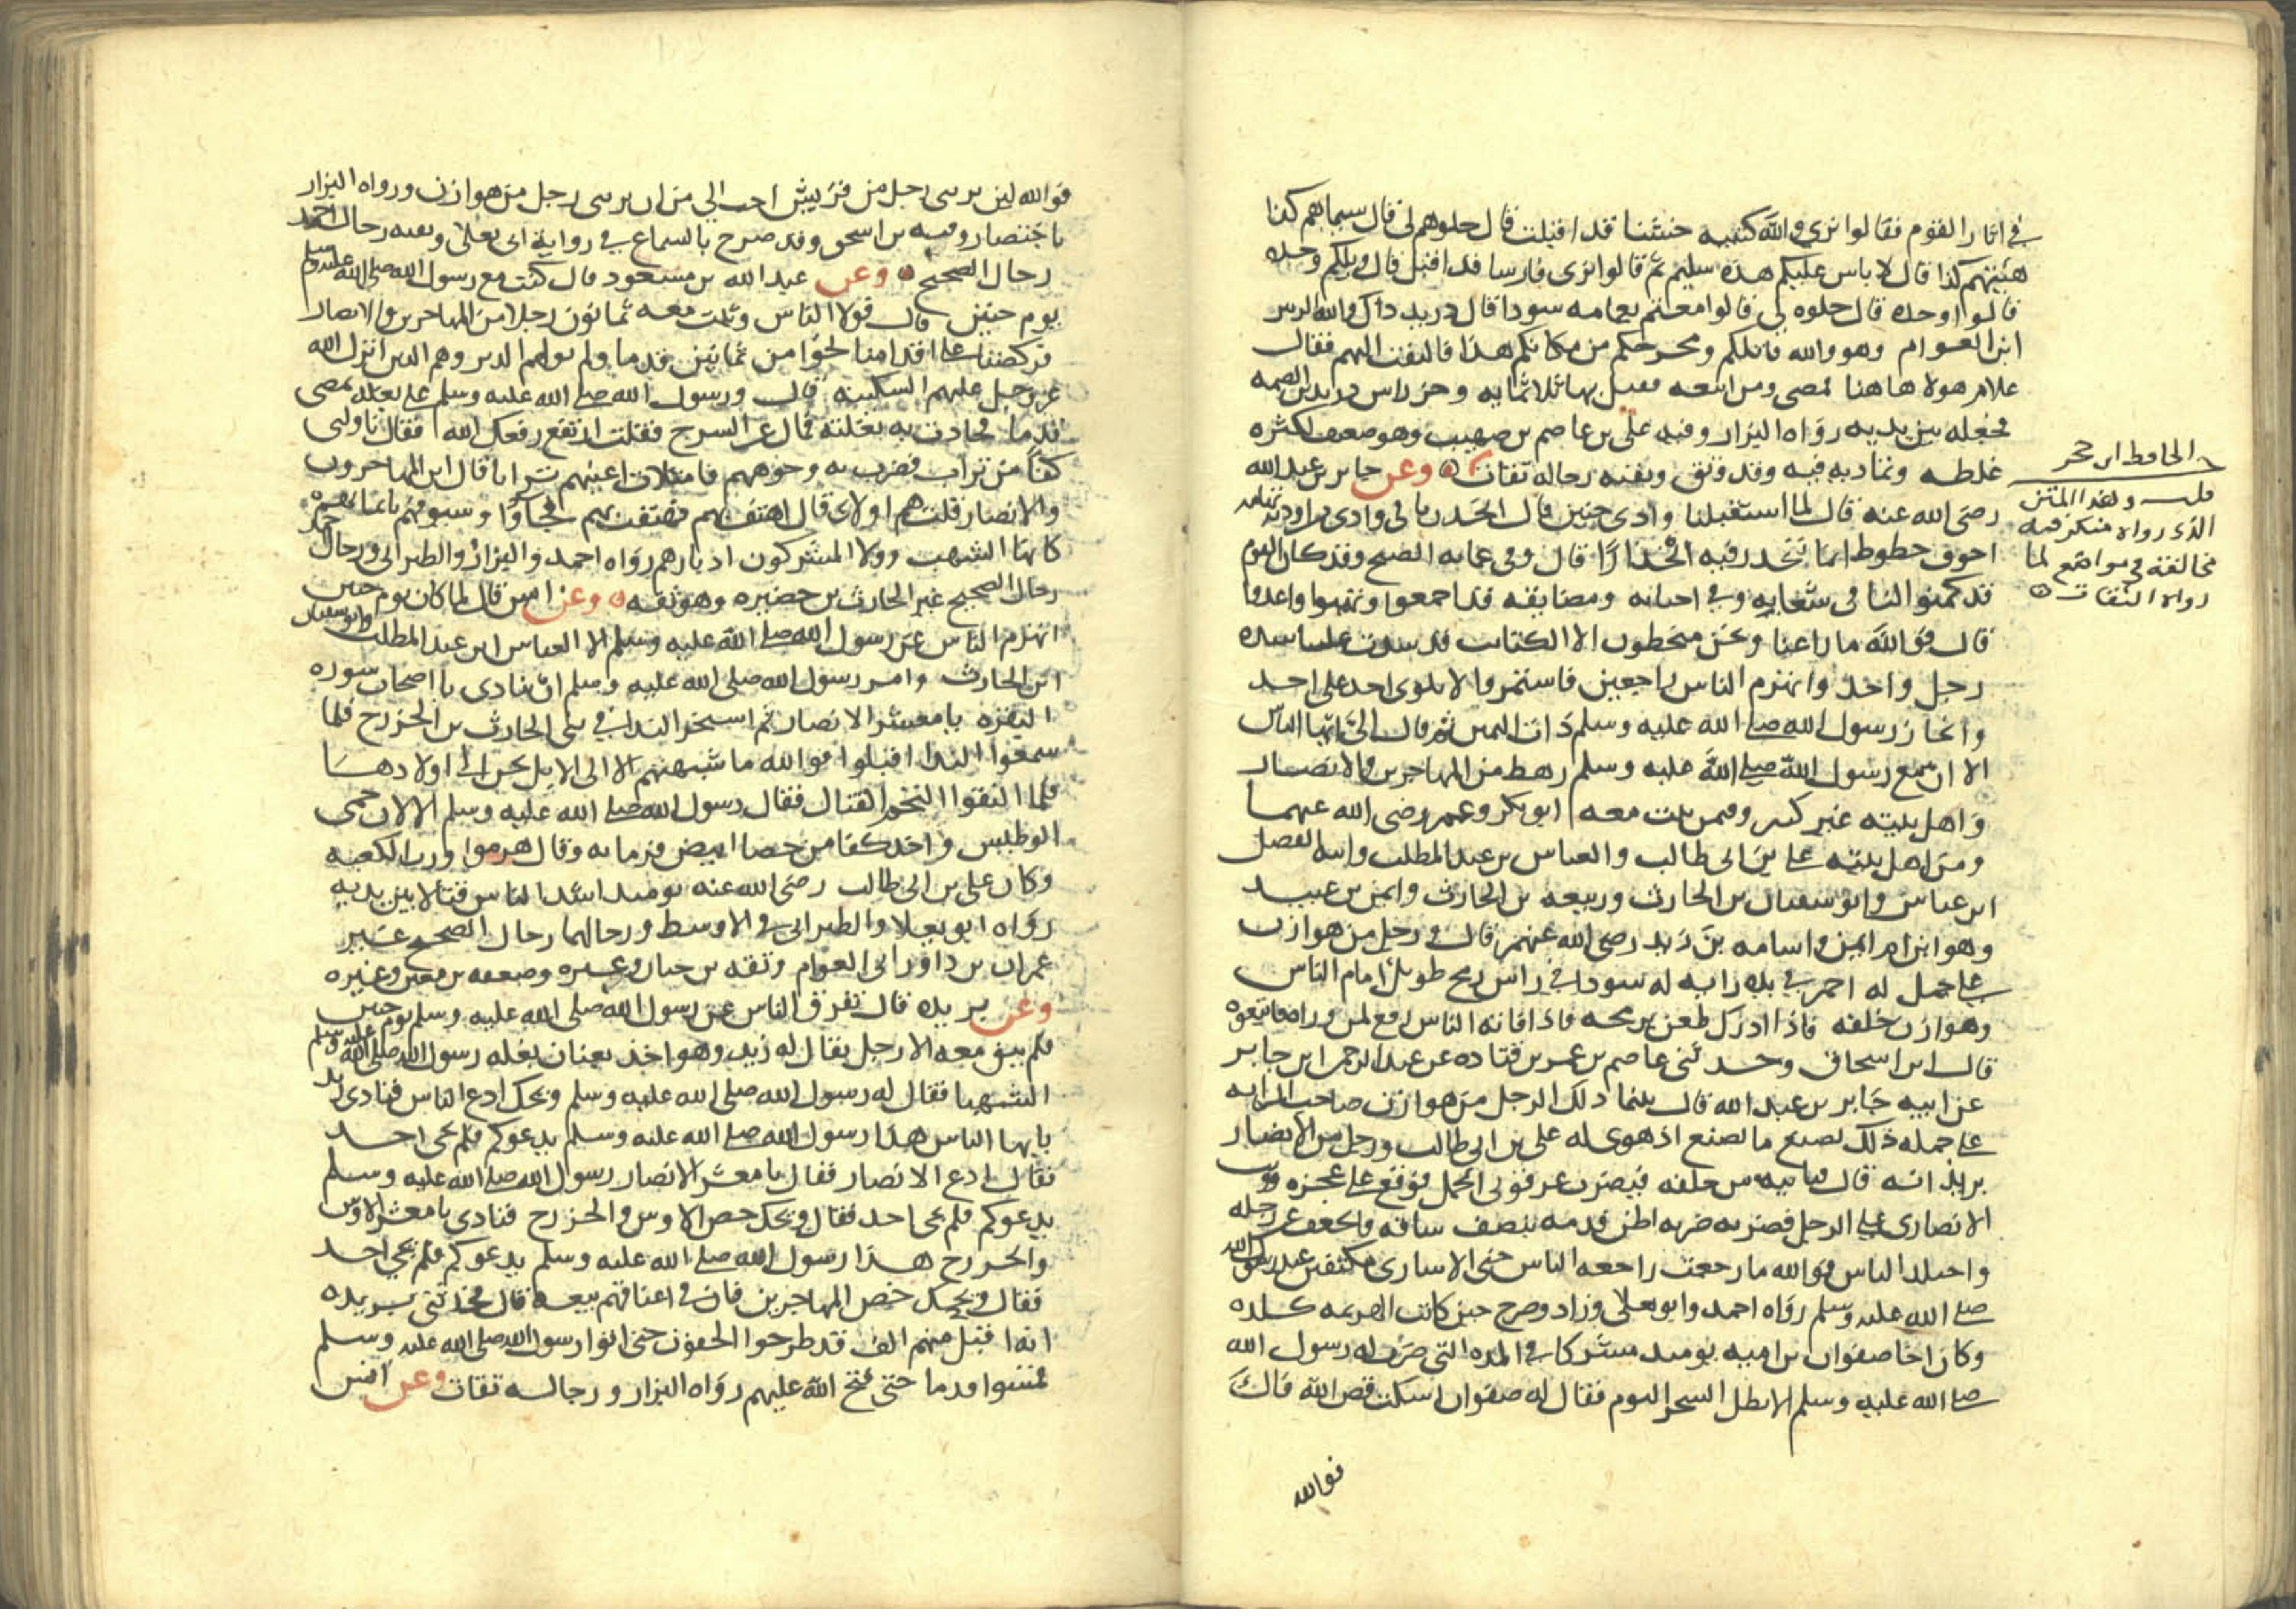 في اثار القوم فقالوا نرى والله كتيبه خشنا قد اقبلت قال حلوهم لي قال سيماهم كذا
هيئتهم كذا قال لا باس عليكم هذه سليم ثم قالوا نرى فارسا قد اقبل قال ويلكم وحده
قالوا وحده قال حلوه لي قالوا معتم بعمامه سودا قال دريد ذاك والله الزبير
ابن العوام وهو والله قاتلكم ومخرجكم من مكانكم هذا فالتفت اليهم فقال
علام هولا هاهنا فمضى ومن اتبعه فقتل بها ثلاثمايه وحز راس دريد بن الصمه
فجعله بين يديه رواه البزار وفيه علي بن عاصم بن صهيب وهو ضعيف لكثره
غلطه وتماديه فيه وقد وثق وبقيه رجاله ثقات وعن جابر بن عبد الله
رضي الله عنه قال لما استقبلنا وادي حنين قال انحدرنا في وادي من اوديه تهامه
اجوف حطوط انما ننحدر فيه انحدارا قال وفي عمايه الصبح وقد كان القوم
قد كمنوا لنا في شعابه وفي احنائه ومضايقه قد اجمعوا وتهيوا واعدوا
قال فوالله ما راعنا ونحن منحطون الا الكتائب قد شدت علينا شده
رجل واحد وانهزم الناس راجعين فاستمروا لا يلوي احد على احد
وانحاز رسول الله صلى الله عليه وسلم ذات اليمين ثم قال الي ايها الناس
الا ان مع رسول الله صلى الله عليه وسلم رهط من المهاجرين والانصار
واهل بيته غير كثير وفيمن ثبت معه ابو بكر وعمر رضي الله عنهما
ومن اهل بيته علي بن ابي طالب والعباس بن عبد المطلب وابنه الفضل
ابن عباس وابو سفيان بن الحارث وربيعه بن الحارث وايمن بن عبيد
وهو ابن ام ايمن واسامه بن زيد رضي الله عنهم قال ورجل من هوازن
على جمل له احمر في يده رايه له سودا في راس رمح طويل امام الناس
وهوازن خلفه فاذا ادرك طعن برمحه فاذا فاته الناس رفع لمن وراه فاتبعوه
قال ابن اسحاق وحدثني عاصم بن عمر بن قتاده عن عبد الرحمن بن جابر
عن ابيه جابر بن عبد الله قال بينما ذلك الرجل من هوازن صاحب الرايه
على جمله ذلك يصنع ما يصنع اذ هوى له علي بن ابي طالب ورجل من الانصار
يريدانه قال فياتيه من خلفه فيضرب عرقوبي الجمل فوقع على عجزه ووثب
الانصاري على الرجل فضربه ضربه اطن قدمه بنصف ساقه فانجعف عن رحله
واجتلد الناس فوالله ما رجعت راجعه الناس حتى الاسارى مكتفين عند رسول الله
صلى الله عليه وسلم رواه احمد وابو يعلى وزاد وصرح حين كانت الهزيمه كلده
وكان اخا صفوان بن اميه يوميد مشركا في المده التي ضرب له رسول الله
صلى الله عليه وسلم الا بطل السحر اليوم فقال له صفوان اسكت فض الله فاك
فوالله
الحافظ ابن حجر
قلت وهذا المتن
الذي رواه منكر فيه
مخالفة في مواضع لما
رواه الثقات
فوالله لين يربني رجل من قريش احب الي من ان يربني رجل من هوازن ورواه البزار
باختصار وفيه بن اسحق وقد صرح بالسماع في رواية ابي يعلى وبقيه رجال احمد
رجال الصحيح وعن عبد الله بن مسعود قال كنت مع رسول الله صلى الله عليه وسلم
يوم حنين قال فولا الناس وثبت معه ثمانون رجلا من المهاجرين والانصار
فركضنا على اقدامنا نحوا من ثمانين قدما ولم نولهم الدبر وهم الذين انزل الله
عز وجل عليهم السكينه قال ورسول الله صلى الله عليه وسلم على بغلته يمضي
قدما فحادت به بغلته فمال عن السرج فقلت ارتفع رفعك الله فقال ناولني
كفا من تراب فضرب به وجوههم فامتلات اعينهم ترابا قال اين المهاجرون
والانصار قلت هم اولاي قال اهتف بهم فهتفت بهم فجاوا وسيوفهم بايمانهم
كانها الشهب وولا المشركون ادبارهم رواه احمد والبزار والطبراني ورجال احمد
رجال الصحيح غير الحارث بن حضيره وهو ثقه وعن انس قال لما كان يوم حنين
انهزم الناس عن رسول الله صلى الله عليه وسلم الا العباس ابن عبد المطلب وابو سفيان
ابن الحارث وامر رسول الله صلى الله عليه وسلم ان ينادي يا اصحاب سوره
البقره يا معشر الانصار ثم استحر الندا في بني الحارث بن الخزرج فلما
سمعوا الندا اقبلوا فوالله ما شبهتهم الا الى الابل تحن الى اولادها
فلما التقوا التحم القتال فقال رسول الله صلى الله عليه وسلم الان حمي
الوطيس واخذ كفا من حصا ابيض فرما به وقال هزموا ورب الكعبه
وكان علي بن ابي طالب رضي الله عنه يوميد اشد الناس قتالا بين يديه
رواه ابو يعلا والطبراني في الاوسط ورجالهما رجال الصحيح غير
عمران بن داور ابي العوام وثقه بن حبان وغيره وضعفه بن معين وغيره
وعن بريده قال تفرق الناس عن رسول الله صلى الله عليه وسلم يوم حنين
فلم يبق معه الا رجل يقال له زيد وهو اخذ بعنان بغله رسول الله صلى الله عليه وسلم
الشهبا فقال له رسول الله صلى الله عليه وسلم ويحك ادع الناس فنادى زيد
يايها الناس هذا رسول الله صلى الله عليه وسلم يدعوكم فلم يجي احد
فقال ادع الانصار فقال يا معشر الانصار رسول الله صلى الله عليه وسلم
يدعوكم فلم يجي احد فقال ويحك خص الاوس والخزرج فنادى يا معشر الاوس
والخزرج هذا رسول الله صلى الله عليه وسلم يدعوكم فلم يجي احد
فقال ويحك خص المهاجرين فان في اعناقهم بيعه قال فحدثني بريده
انه اقبل منهم الف قد طرحوا الجفون حتى اتوا رسول الله صلى الله عليه وسلم
فمشوا قدما حتى فتح الله عليهم رواه البزار ورجاله ثقات وعن انس